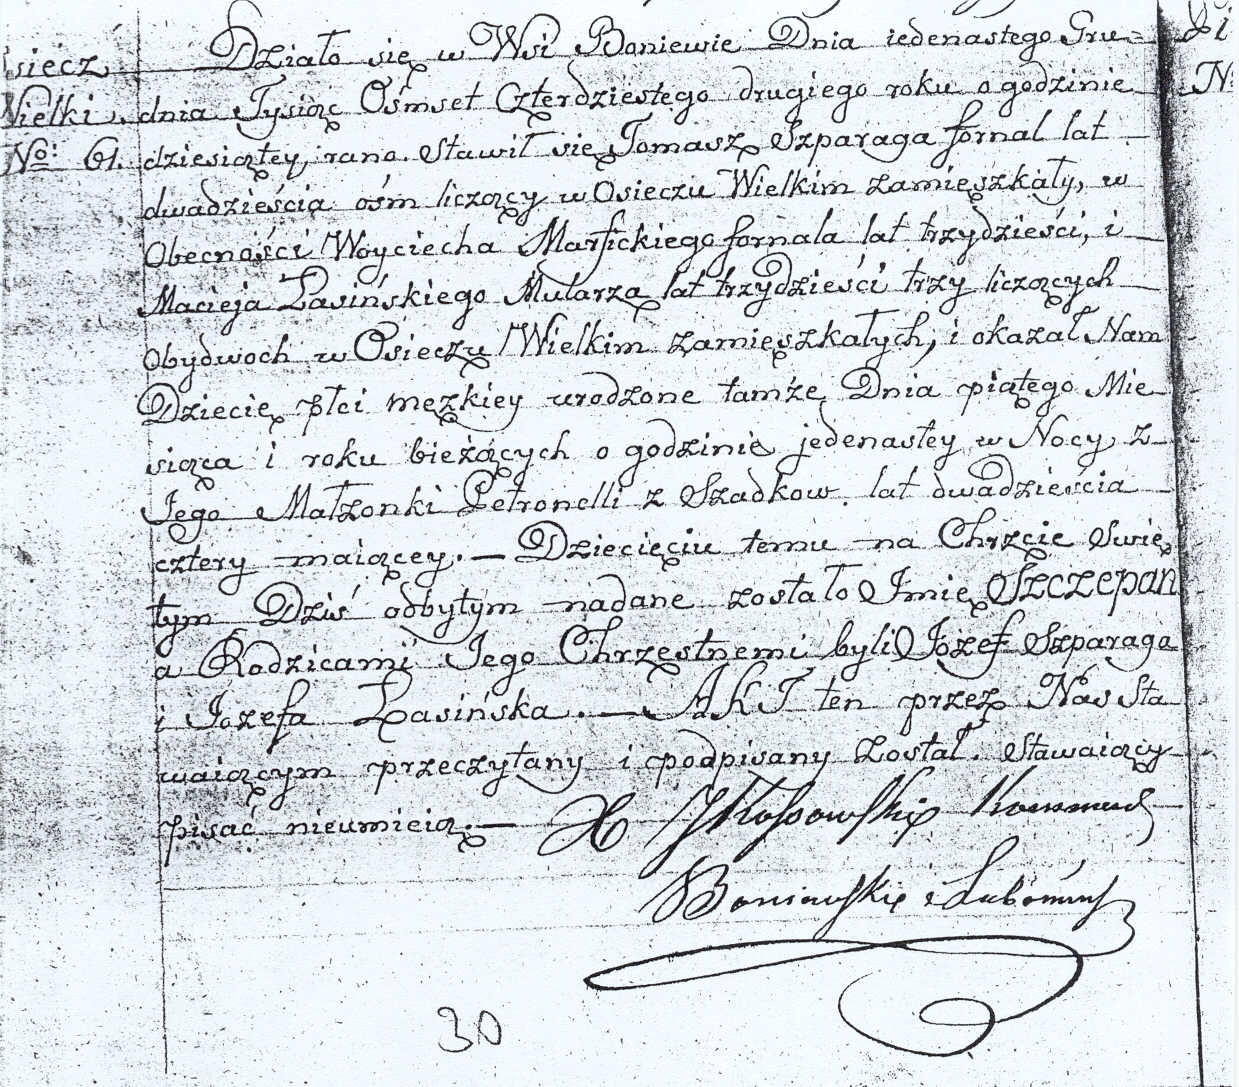 siecz
Wielki.
No: 61.
Działo się w Wsi Boniewie Dnia iedenastego Gru=
dnia Tysiąc Ośmset Czterdziestego drugiego roku o godzinie
dziesiątey rano. Stawił się Tomasz Szparaga fornal lat
dwadzieścia ośm liczący w Osieczu Wielkim zamięszkały, w
Obecności Woyciecha Marfickiego fornala lat trzydzieści, i
Macieja Łasińskiego Mularza lat trzydzieści trzy liczących
obydwoch w Osieczu Wielkim zamięszkałych, i okazał Nam
Dziecię płci męzkiey urodzone tamże Dnia piątego Mie
siąca i roku bieżących o godzinie jedenastey w Nocy z
Jego Małzonki Petronelli z Szadkow lat dwadzieścia
cztery maiącey. — Dziecięciu temu na Chrzcie Swię
tym Dziś odbytym nadane zostało Imię Szczepan
a Rodzicami Jego Chrzestnemi byli Jozef Szparaga
i Jozefa Łasińska. — AKT ten przez Nas Sta
waiącym przeczytany i podpisany został. Stawaiący
pisać nieumieią. —
X Kossowski
Boniewski i Lubomin
30
Di
N